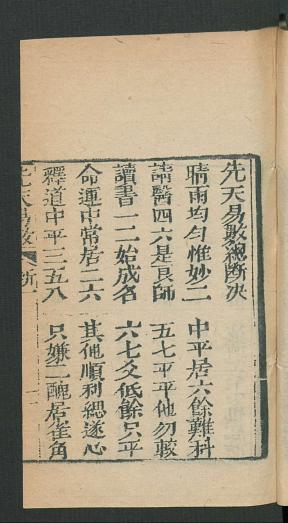 先天易數總斷决
晴雨均匀惟妙二　中平居六餘難科
請醫四六是良師　五七平平他勿較
讀書一二始成名　六七爻低餘只平
命運中常居二六　其他順利總遂心
釋道中平三五八　只嫌二醜居崖角
先天易數　斷